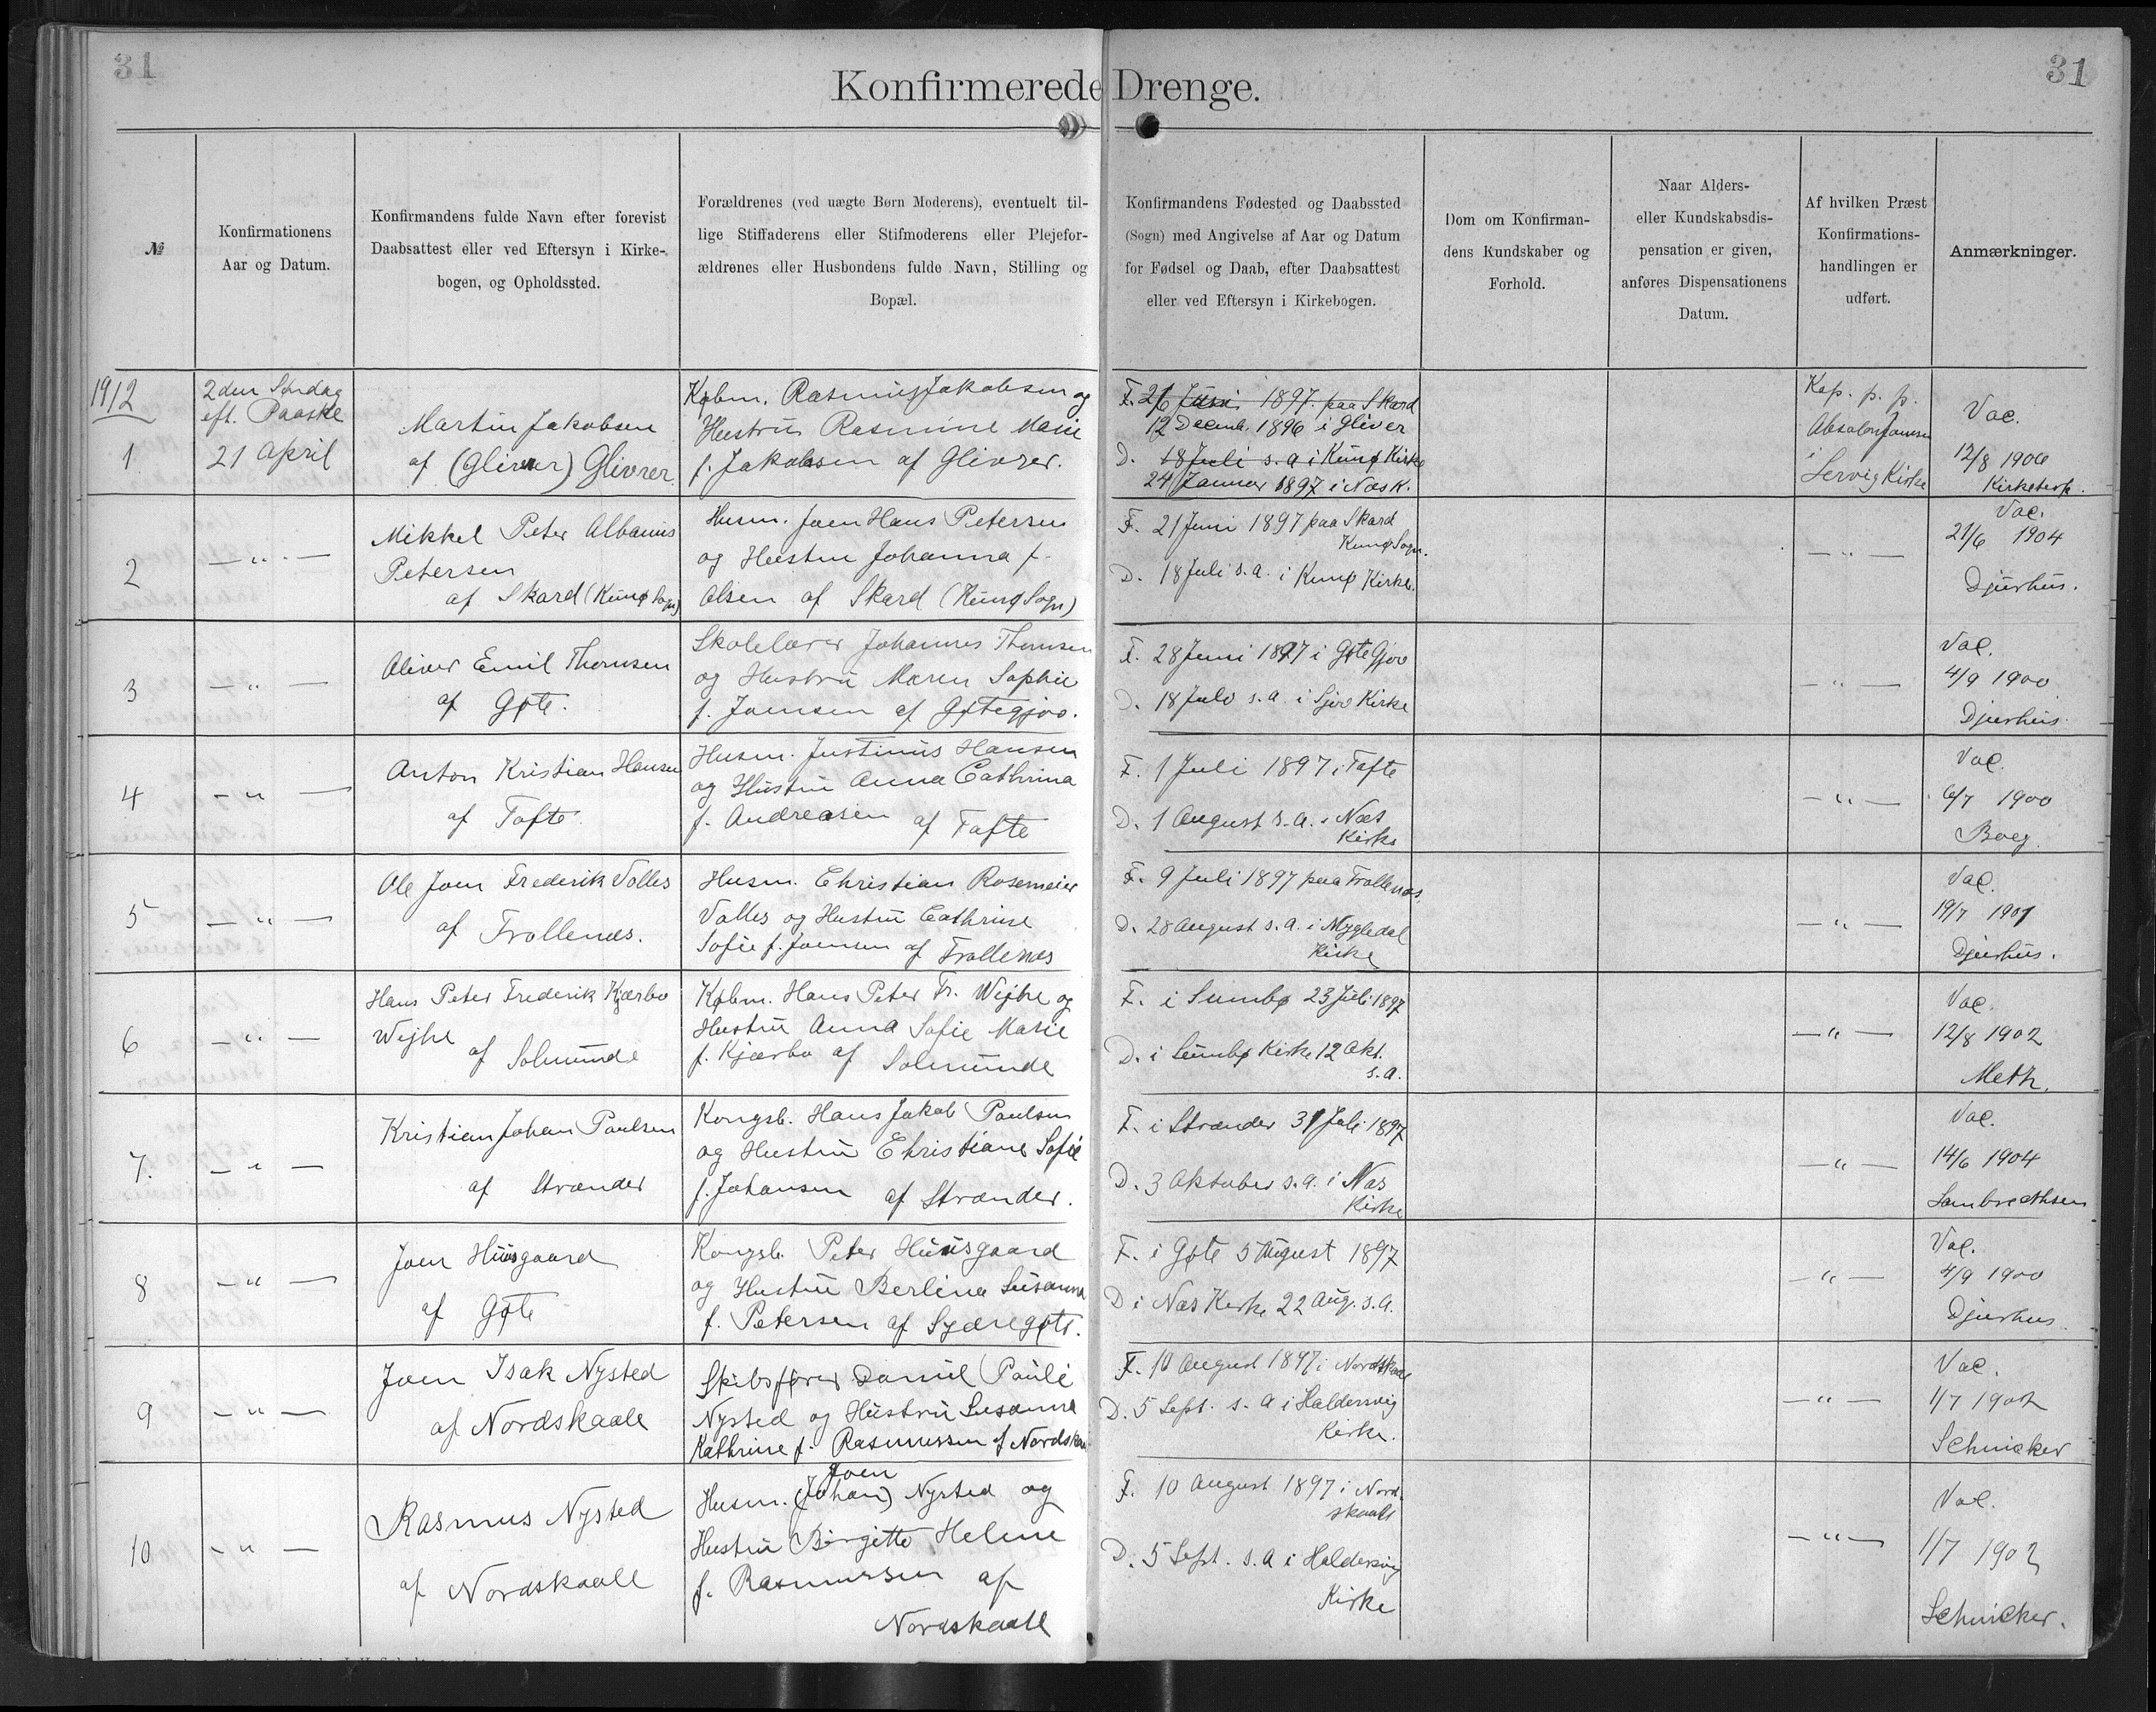 31
31
Konfirmerede Drenge.
№
Konfirmationens
Aar og Datum.
Konfirmandens fulde Navn efter forevist
Daabsattest eller ved Eftersyn i Kirke-
bogen, og Opholdssted.
Forældrenes (ved uægte Børn Moderens), eventuelt til-
lige Stiffaderens eller Stifmoderens eller Plejefor-
ældrenes eller Husbondens fulde Navn, Stilling og
Bopæl.
Konfirmandens Fødested og Daabssted
(Sogn) med Angivelse af Aar og Datum
for Fødsel og Daab, efter Daabsattest
eller ved Eftersyn i Kirkebogen.
Dom om Konfirman-
dens Kundskaber og
Forhold.
Naar Alders-
eller Kundskabsdis-
pensation er given,
anføres Dispensationens
Datum.
Af hvilken Præst
Konfirmations-
handlingen er
udført.
Anmærkninger.
1912
1
2den Søndag
eft. Paaske
21 April
Martin Jakobsen
af (Gliver) Glivrer
Købm. Rasmus Jakobsen og
Hustru Rasmine Marie
f. Jakobsen af Glivrer.
F. 26 Juni 1897. paa Skard
12 Decemb. 1896 i Gliver
D. 18 Juli s. a i Kunø Kirke
24 Januar 1897 i Næs K.
Kap. p. p.
Absalon Joensen
i
Servig Kirke
Vac.
12/8 1906
Kirketerp.
2
— " —
Mikkel Peter Albanus
Petersen
af Skard (Kunø Sogn)
Husm. Joen Hans Petersen
og Hustru Johanna f.
Olsen af Skard (Kunø Sogn)
F. 21 Juni 1897 paa Skard
Kunø Sogn.
D. 18 Juli s. a. i Kunø Kirke.
— " —
Vac.
21/6 1904
Djurhus.
3
— " —
Oliver Emil Thomsen
af Gøte.
Skolelærer Johannes Thomsen
og Hustru Maren Sophie
f. Joensen af Gøtegjov.
F. 28 Juni 1897 i Gøte Gjov
D. 18 Juli s. a. i Gjov Kirke
— " —
Vac.
4/9 1900
Djurhus.
4
— " —
Anton Kristian Hansen
af Tofte.
Husm. Justinus Hansen
og Hustru Anna Cathrina
f. Andreasen af Tofte
F. 1 Juli 1897 i Tofte
D. 1 August s. a. i Næs
Kirke
— " —
Vac.
6/7 1900
Boeg
5
— " —
Ole Joen Frederik Volles
af Trollenæs.
Husm. Christian Rosemeier
Volles og Hustru Cathrine
Sofie f. Joensen af Trollenæs
F. 9 Juli 1897 paa Trollenæs.
D. 28 August s. a. i Mygledal
Kirke
— " —
Vac.
19/7 1901
Djurhus.
6
— " —
Hans Peter Frederik Kjærbo
Wejhe
af Solmunde
Købm. Hans Peter Fr. Wejhe og
Hustru Anna Sofie Marie
f. Kjærbo af Solmunde
F. i Sumbø 23 Juli 1897
D. i Sumbø Kirke 12 Okt.
s. a.
— " —
Vac.
12/8 1902
Meth.
7.
— " —
Kristian Johan Paulsen
af Strænder
Kongsb. Hans Jakob Paulsen
og Hustru Christiane Sofie
f. Johansen af Strænder.
F. i Strænder 31 Juli 1897
D. 3 Oktober s. a. i Næs
Kirke
— " —
Vac.
14/6 1904
Lambrechtsen
8
— " —
Joen Husgaard
af Gøte
Kongsb. Peter Husgaard
og Hustru Berlina Susanna
f. Petersen af Sydregøte.
F. i Gøte 5 August 1897
D i Næs Kirke 22 Aug. s. a.
— " —
Vac.
4/9 1900
Djurhus
9
— " —
Joen Isak Nysted
af Nordskaale
Skibsfører Daniel Pauli
Nysted og Hustru Susanna
Kathrine f. Rasmussen af Nordskaa
F. 10 August 1897 i Nordskaale
D. 5 Sept. s. a i Haldersvig
Kirke.
— " —
Vac.
1/7 1902
Schnicker
10
— " —
Rasmus Nysted
af Nordskaale
Joen
Husm. (Johan) Nysted og
Hustru Birgitte Helene
f. Rasmussen af
Nordskaale
F. 10 August 1897 i Nord-
skaale
D. 5 Sept. s. a i Haldersvig
Kirke
— " —
Vac.
1/7 1902
Schnicker.